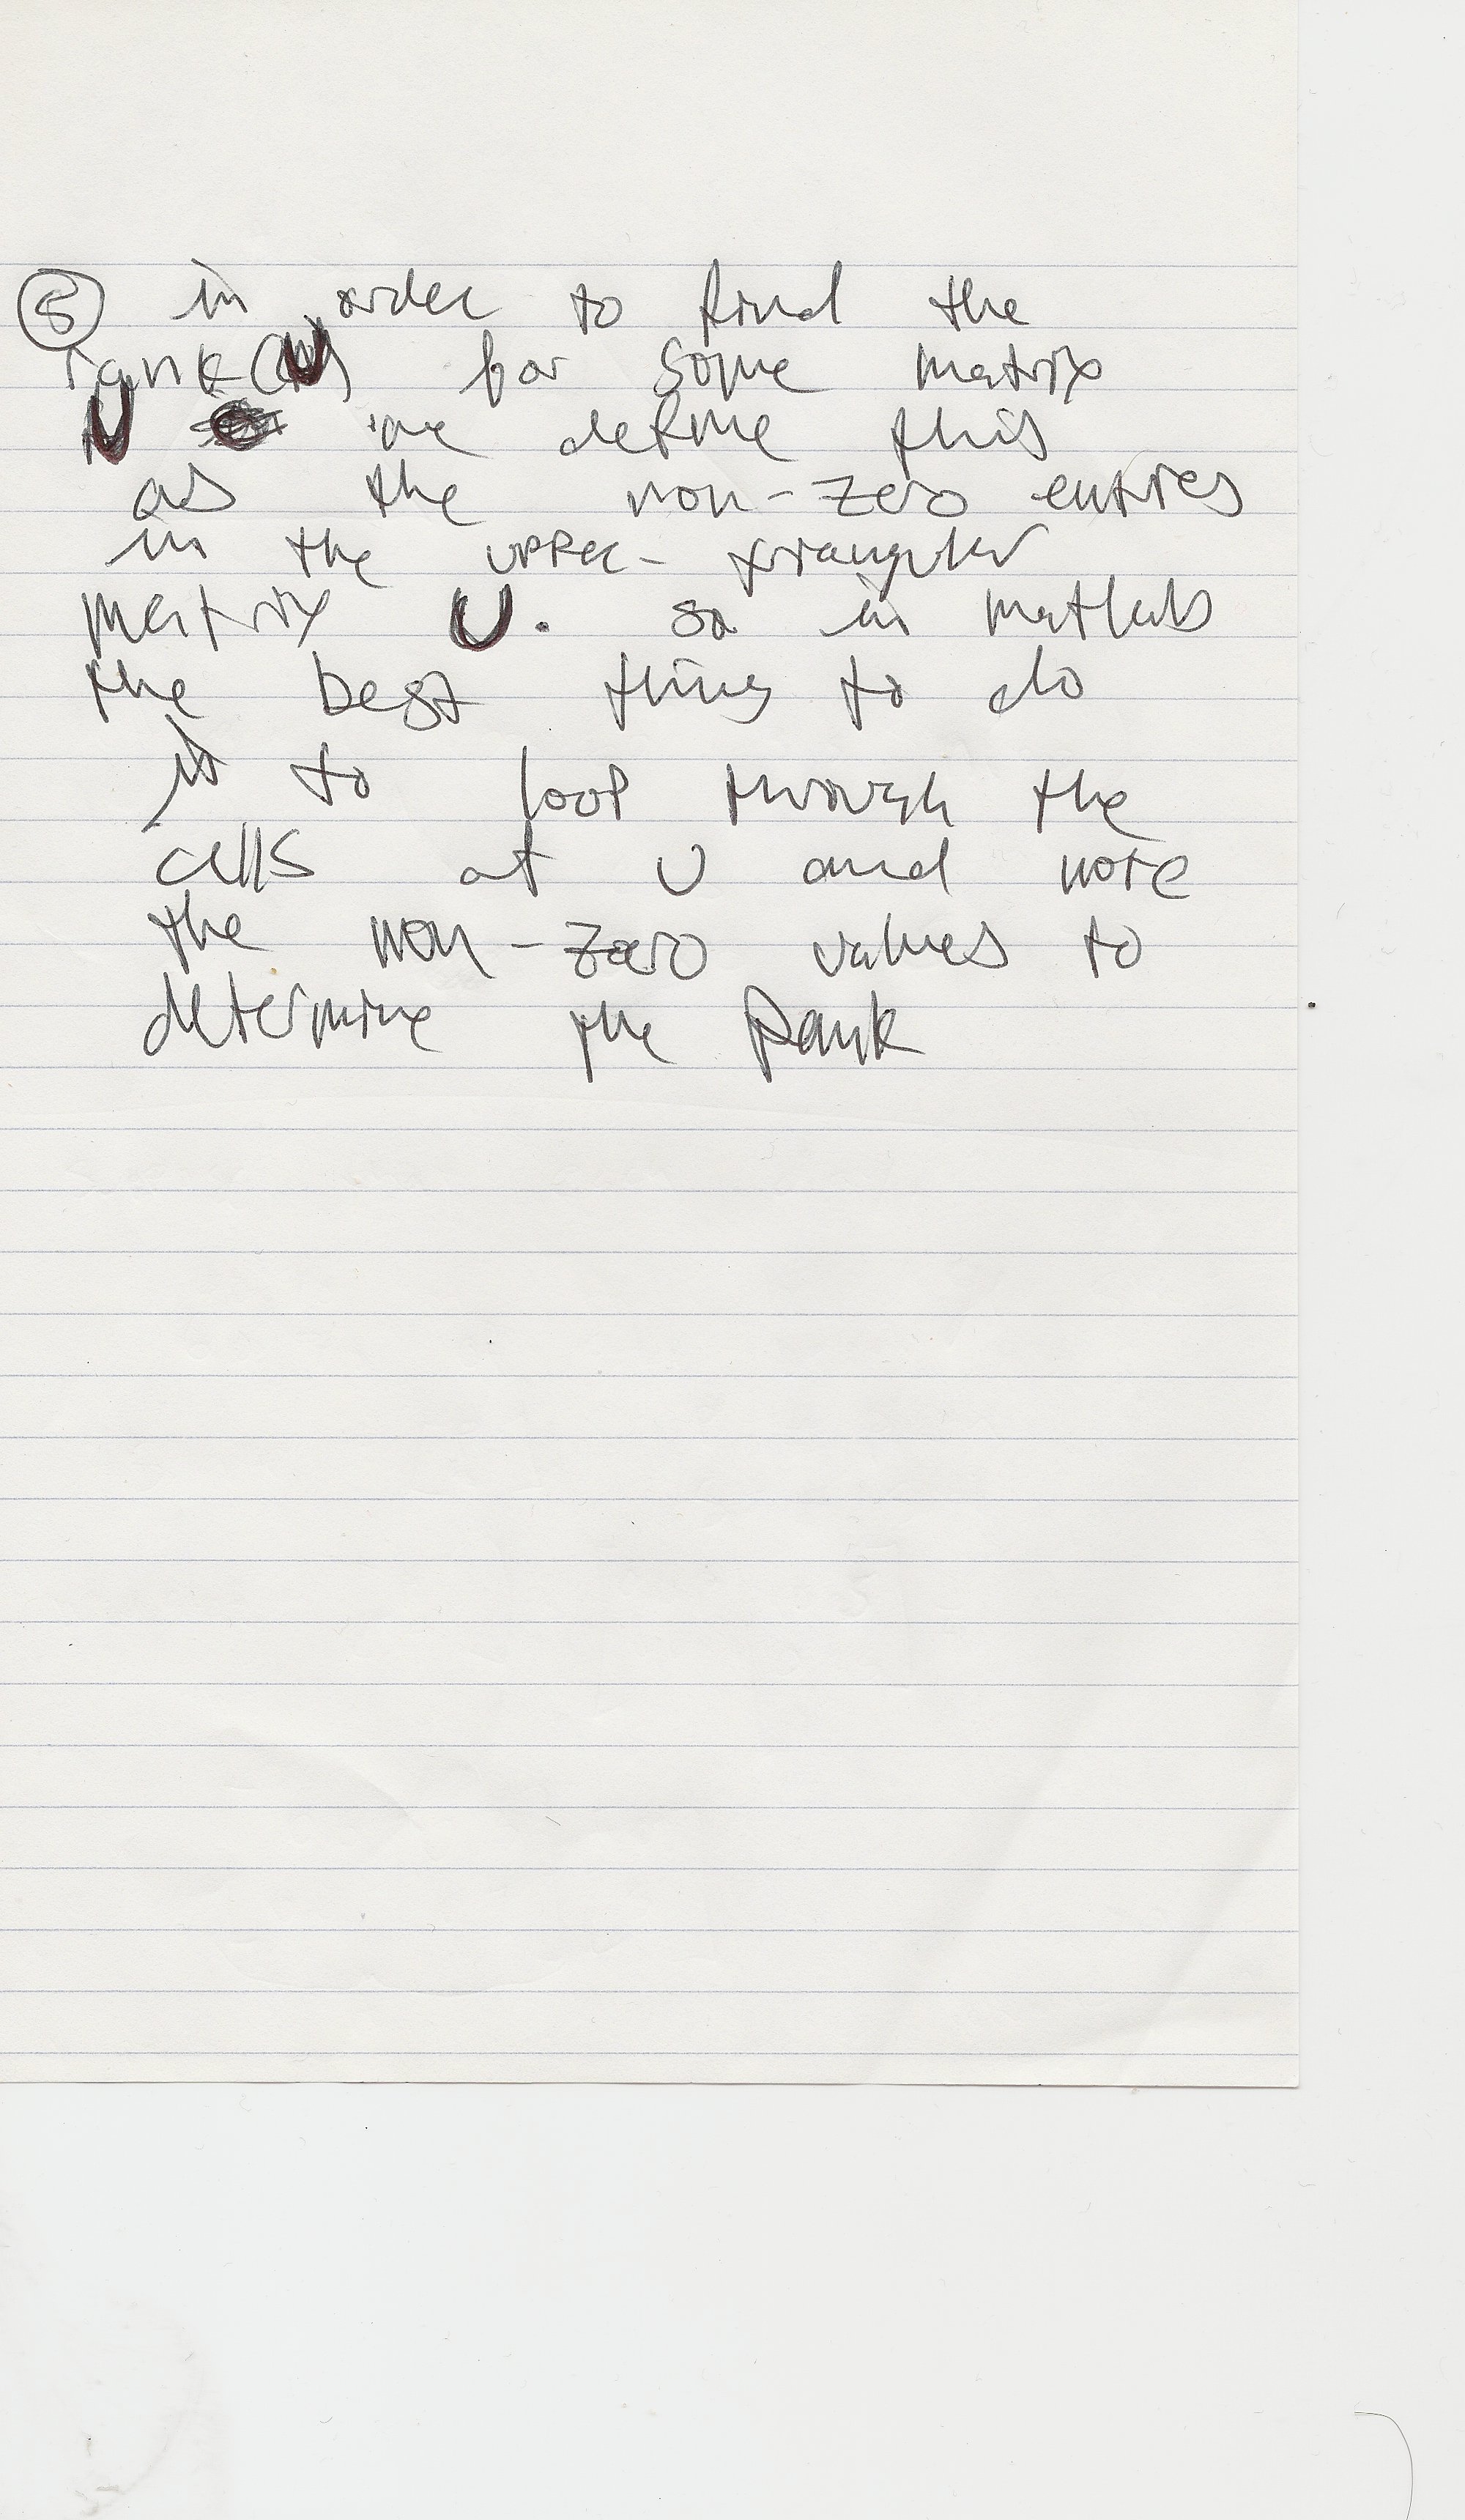 ⑤ in order to find the
rank(U) for some matrix
U we define this
as the non-zero entries
in the upper-triangular
matrix U. so in matlab
the best thing to do
is to loop through the
cells of U and note
the non-zero values to
determine the Rank